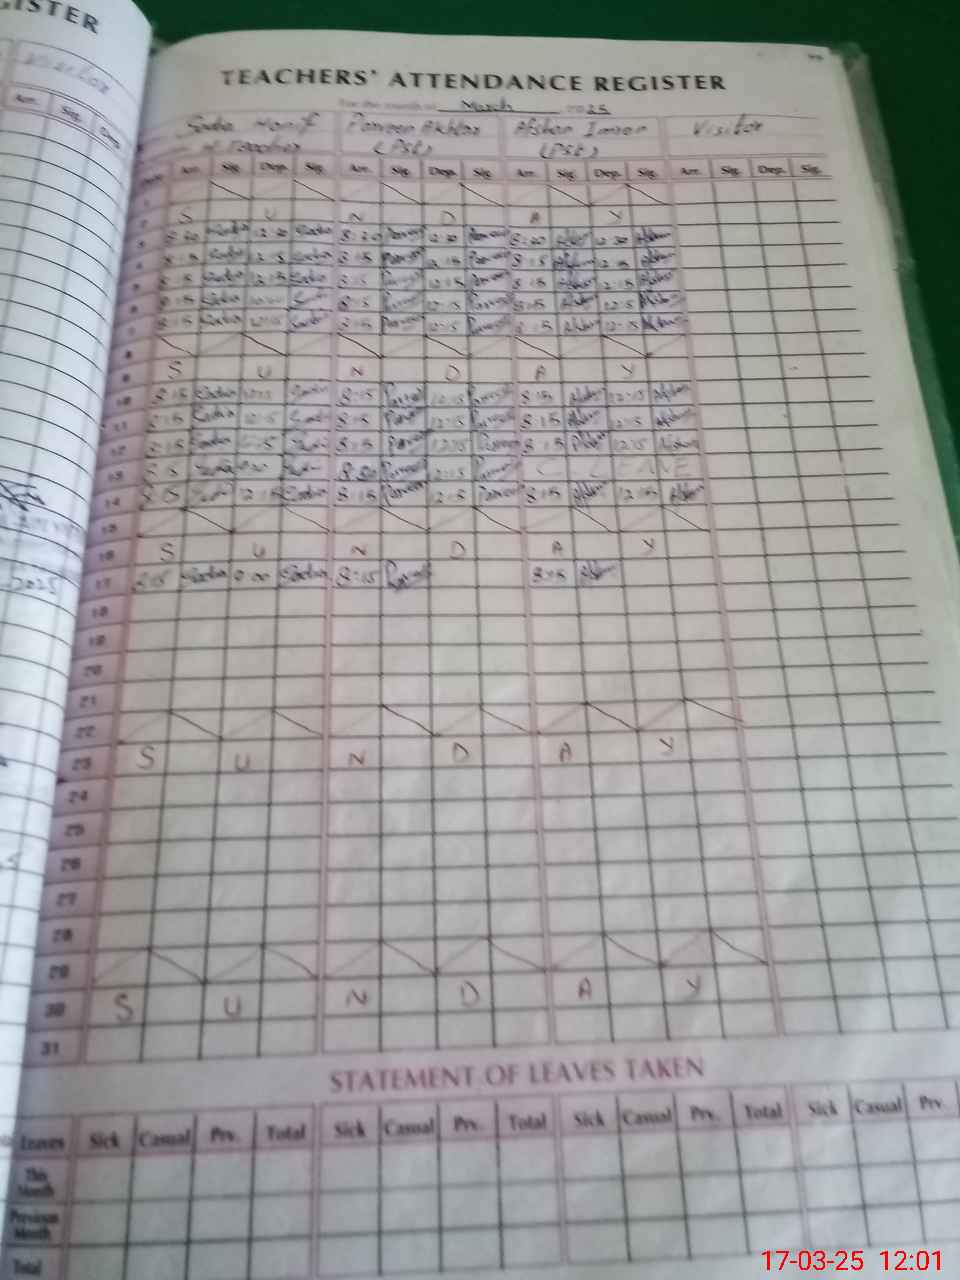 GISTER
Visitor
Arr. Sig. Dep.
TEACHERS' ATTENDANCE REGISTER
For the month of March 2025
Sadia Hanif Parveen Akhtar Afshan Imran Visitor
H Teacher (Pst) (Pst)
Arr. Sig. Dep. Sig. Arr. Sig. Dep. Sig. Arr. Sig. Dep. Sig. Arr. Sig. Dep. Sig.
1
2 S U N D A Y
3 8:20 Sadia 12:20 Sadia 8:20 Parveen 12:20 Parveen 8:20 Afshan 12:20 Afshan
4 8:15 Sadia 12:15 Sadia 8:15 Parveen 12:15 Parveen 8:15 Afshan 12:15 Afshan
5 8:15 Sadia 12:15 Sadia 8:15 Parveen 12:15 Parveen 8:15 Afshan 12:15 Afshan
6 8:15 Sadia 8:15 Parveen 12:15 Parveen 8:15 Afshan 12:15 Afshan
7 8:15 Sadia 12:15 Sadia 8:15 Parveen 12:15 Parveen 8:15 Afshan 12:15 Afshan
8
9 S U N D A Y
10 8:15 Sadia Sadia 8:15 Parveen 12:15 Parveen 8:15 Afshan 12:15 Afshan
11 8:15 Sadia 12:15 Sadia 8:15 Parveen 12:15 Parveen 8:15 Afshan 12:15 Afshan
12 8:15 Sadia Sadia 8:15 Parveen 12:15 Parveen 8:15 Afshan 12:15 Afshan
13 Sadia Sadia Parveen 12:15 Parveen C. LEAVE
14 8:15 Sadia 12:15 Sadia 8:15 Parveen 12:15 Parveen 8:15 Afshan 12:15 Afshan
15
16 S U N D A Y
17 8:15 Sadia 9:00 Sadia 8:15 Parveen 8:15 Afshan
18
19
20
21
22
23 S U N D A Y
24
25
26
27
28
29
30 S U N D A Y
31
STATEMENT OF LEAVES TAKEN
Leaves Sick Casual Prv. Total Sick Casual Prv. Total Sick Casual Prv. Total Sick Casual Prv.
This Month
Previous Month
Total
2025
17-03-25 12:01